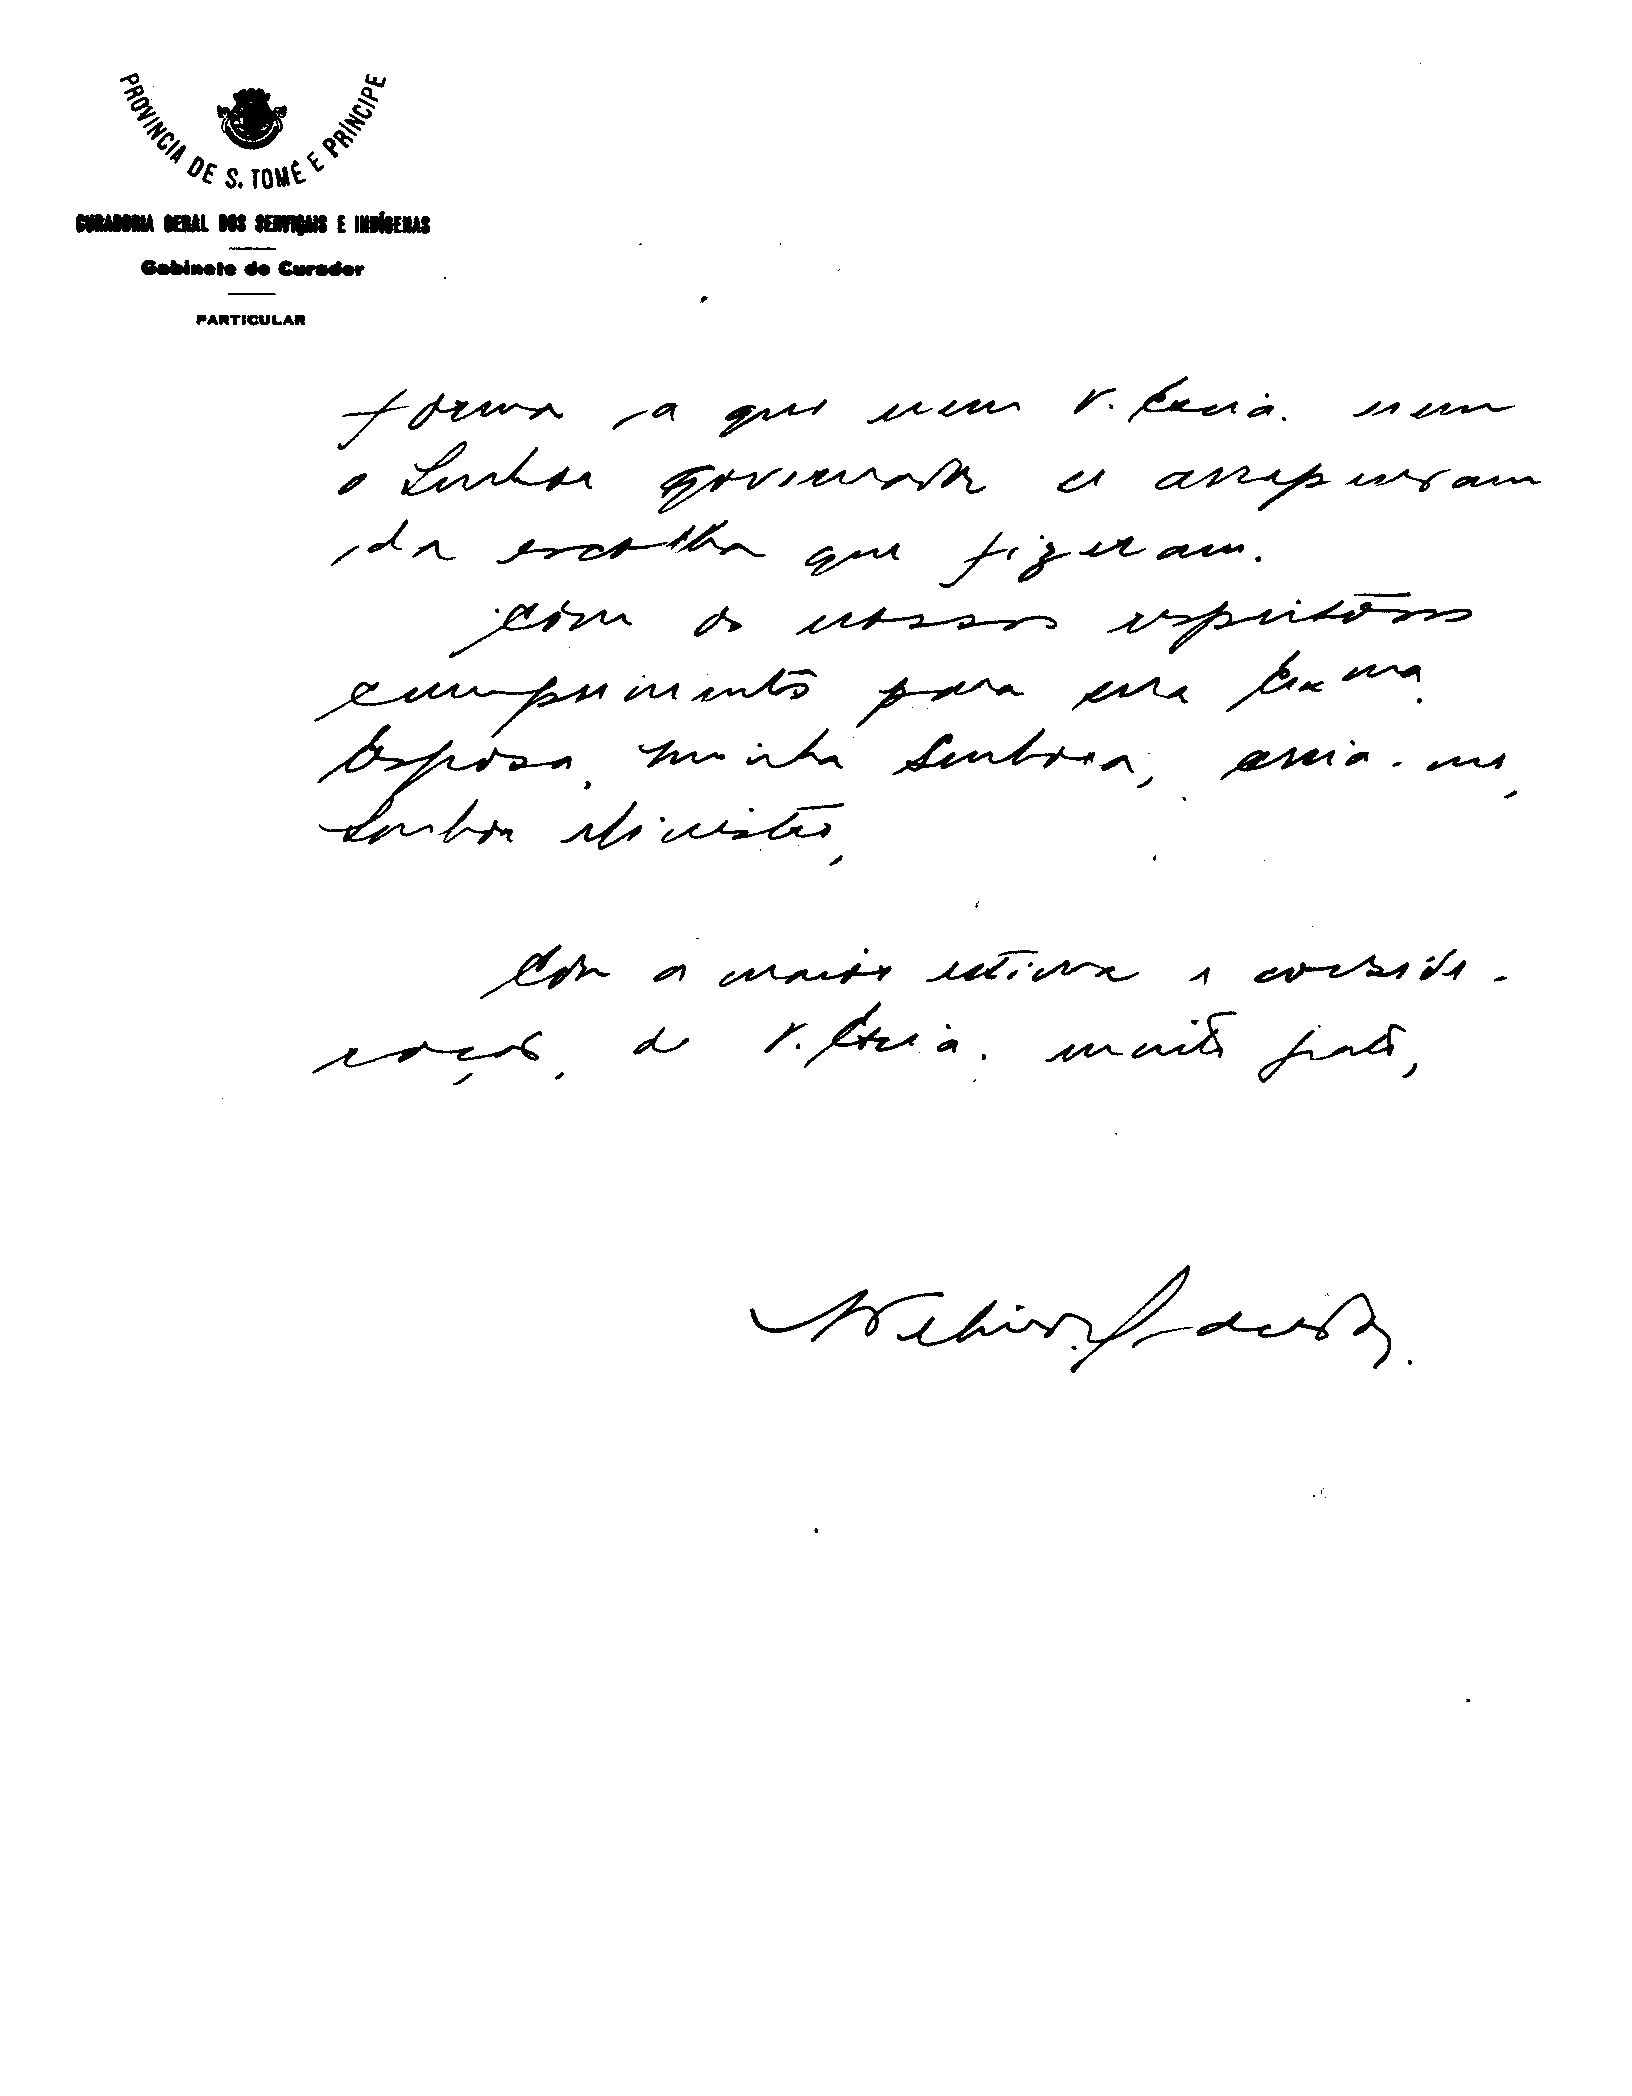 PROVINCIA DE S. TOMÉ E PRÍNCIPE
CURADORIA GERAL DOS SERVIÇAIS E INDÍGENAS
Gabinete do Curador
PARTICULAR
forma a que nem V. Excia. nem
o Senhor Governador se arrependam
da escolha que fizeram.
Com os nossos respeitosos
cumprimentos para sua Exma.
Esposa, minha Senhora, creia-me,
Senhor Ministro,
Com a maior estima e conside-
ração, de V. Excia. muito grato,